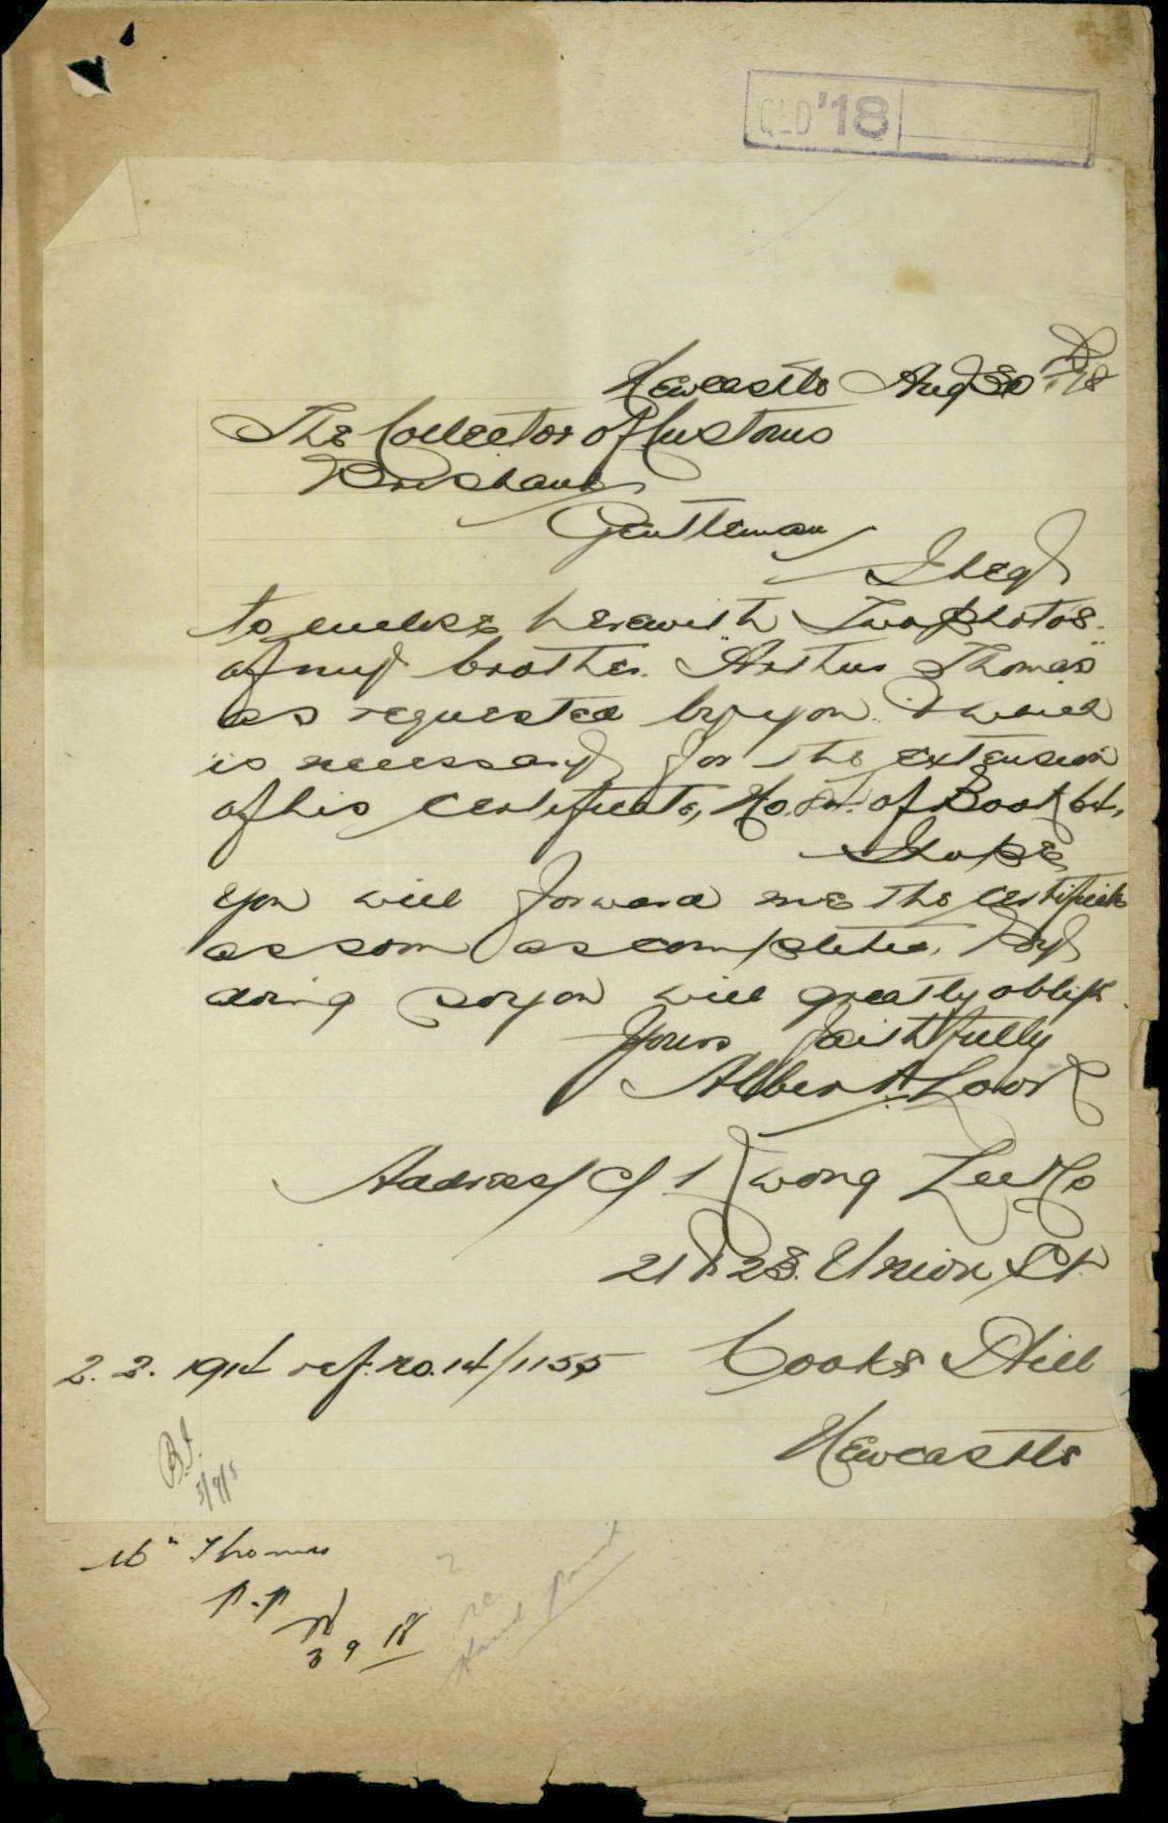 QLD '18
Newcastle Aug 30th 18
The Collector of Customs
Brisbane
Gentleman
I beg
to enclose herewith Two photos
of my brother "Arthur Thomas"
as requested by you & which
is necessary for the extension
of his Certificate, No. of Book 64,
I hope
you will forward me the certificate
as soon as completed, By
doing so you will greatly oblige
Yours faithfully
Albert Low
Address C/ Kwong Lee & Co
21 & 23 Union St.
Cooks Hill
Newcastle
2. 2. 1914 ref. no. 14/1155
B.F.
5/9/8
Mr Thomas
p.p
3 9 18
Hand print